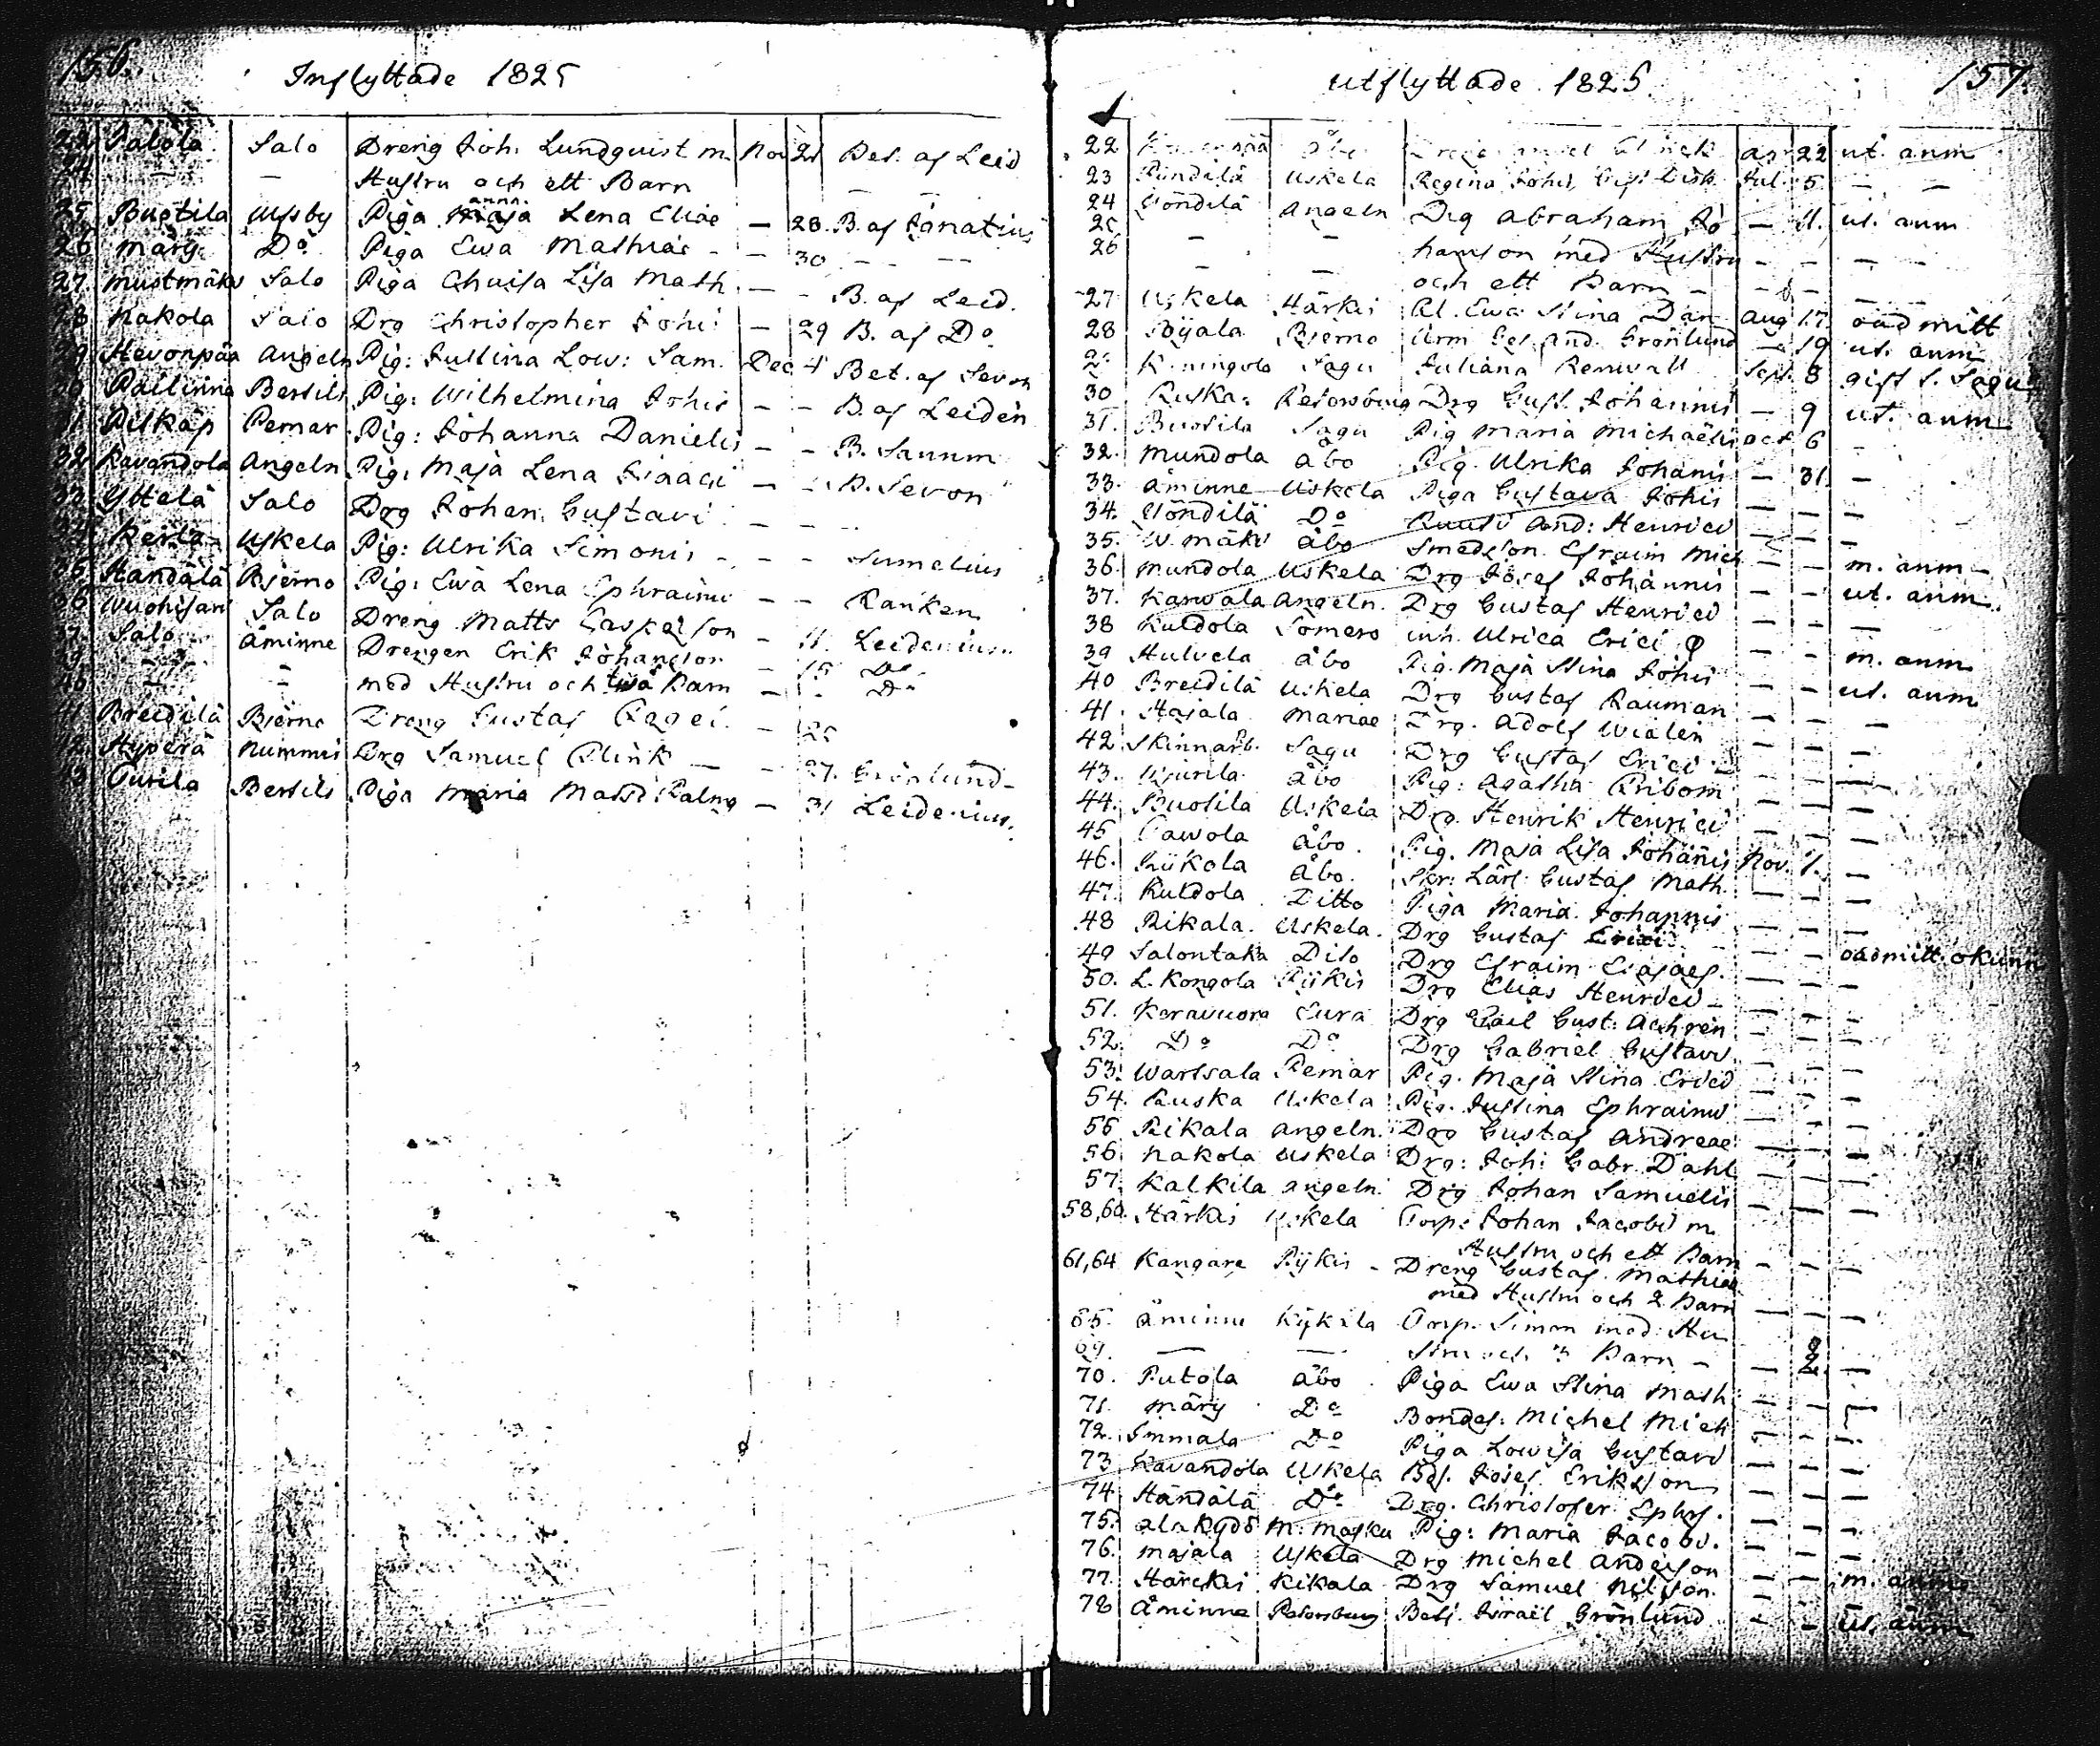 156.
Inflyttade 1825
23 Pabola Salo Dreng Joh: Lundquist m. Nov 21 Bet. af Leid
24 — — Hustru och ett Barn — —
25 Buotila Ulfsby Piga Maja anna. Lena Eliae — 28. B. af Ignatius
26 Märy Do Piga Ewa Mathiae — 30 — —
27. Mustmäki Salo Piga Lovisa Lisa Math — - B. af Leid.
28 Nakola Salo Drg Christopher Johis — 29 B. af Do
29 Hevonpää Angeln Pig: Justina Low: Sam. Dec 4 Bet. af Sevon
30 Pailinna Bertils Pig: Wilhelmina Johis — - B. af Leiden
31 Pitkäp Pemar Pig: Johanna Danielis — - B. Saunm
32 Kavandola Angeln Pig: Maja Lena Isaaci — - B. Sevon
33. Yttelä Salo Drg Johan Gustavi — - -
34 Kerla Uskela Pig: Ulrika Simonis - - - Sumelius
35 Händälä Bjerno Pig: Ewa Lena Ephraimi — - Ranken
36 Wuohisari Salo Dreng Matts Casperson - 11. Leidenius
37. Salo Åminne Drengen Erik Johansson - 15 Do
— - med Hustru och twå Barn — - Do
41 Breidilä Bjerno Dreng Gustaf - 25
42 Hyperä Nummis Drg Samuel Blink — - 27. Grönlund -
43 Turila Bertils Piga Maria Matsd: Palmg — 31 Leidenius.
utflyttade 1825.
157.
22 22 ut. anm
23 Pundilä Uskela Regina Johis Jul. 5 — —
24 Göndilä Angeln Drg Abraham Jo — 11. ut. anm
25 - - hanson med Hustru - - - -
26 - - och ett Barn - - -
27 Uskela Härkis Ewa Stina Dan Aug 17. oadmitt
28 Pöjala Bjerno And. Grönlund — 19 ut. anm
Sagu Juliana Renwall Sept. 8 gift i Sagu
30 Ruska Petersburg Drg Gust. Johannis — 9 ut. anm
31. Buotila Sagu Pig Maria Michaëlis oct 6 -
32. Mundola åbo Pig. Ulrika Johanis — 31. -
33. åminne Uskela Piga Gustava Johis — - -
34. Göndilä Do And: Henrici — - -
35. W. mäki åbo Smedsson Efraim Mich — - m. anm -
36. Mundola Uskela Drg Josef Johannis - - ut. anm.
37. Karwala Angeln. Drg Gustaf Henrici - - —
38 Kuldola Somero inh. Ulrica Erici - - m. anm
39 Hulvela åbo Pig. Maja Stina Johis - - ut. anm
40 Breidilä Uskela Drg Gustaf Rauman - - -
41. Hajala Mariae Drg. Adolf Wialen - - -
42 Skinnarb. Sagu Drg Gustaf Erici - - -
43. åbo Pig: Agatha Fribom - - -
44. Buotila Uskela Drg Henrik Henrici - - -
45 Tawola åbo. Pig. Maja Lisa Johanis Nov. 1. -
46. Rükola åbo. Skr: Lärl: Gustaf Math. - - -
47. Kuldola Ditto Piga Maria Johannis - - -
48 Rikala. Uskela. Drg Gustaf Erici - - oadmitt. okunn
49 Salontaka Dito Drg Efraim - - -
50. L. Kongola Pijkis Drg Elias Henrici - - -
51. Keravuore Eura Drg Gust: Achren - - -
52. Do Do Drg Gabriel Gustavi - - -
53. Wartsala Pemar Pig. Maja Stina Erici - - -
54. Ruska Uskela Pig. Justina Ephraimi - - -
55 Rikala Angeln. Drg Gustaf Andreae - - -
56. Nakola Uskela Drg: Joh: Gabr. Dahl - - -
57. Kalkila Angeln Drg Johan Samuelis - - -
58,60. Härkis Uskela Torp: Johan Jacobi m
Hustru och ett Barn - - -
61,64 Kangare Pijkis - Dreng Gustaf Mathiae
med Hustru och 2 Barn — - -
65. Åminne Kijkala Torp. Simon med Hu
69. — — stru och 3 Barn - — 2. -
70. Putola åbo Piga Ewa Stina Math - - -
71. Märy Do Bondes: Michel Mich - - -
72. Immala Do Piga Lowisa Gustavi - - -
73 Kavandola Uskela Bds. Josef Eriksson - - -
74 Händälä Do Drg. Christofer Ephr. - - -
75. Alakylö M: Masku Pig: Maria Jacobi. - - -
76. Majala Uskela Drg Michel Anderson - - -
77. Härckis Kikala Drg Samuel Nilsson. - - m. anm.
78 Åminne Petersburg Betj. Israël Grönlund - - ut. anm